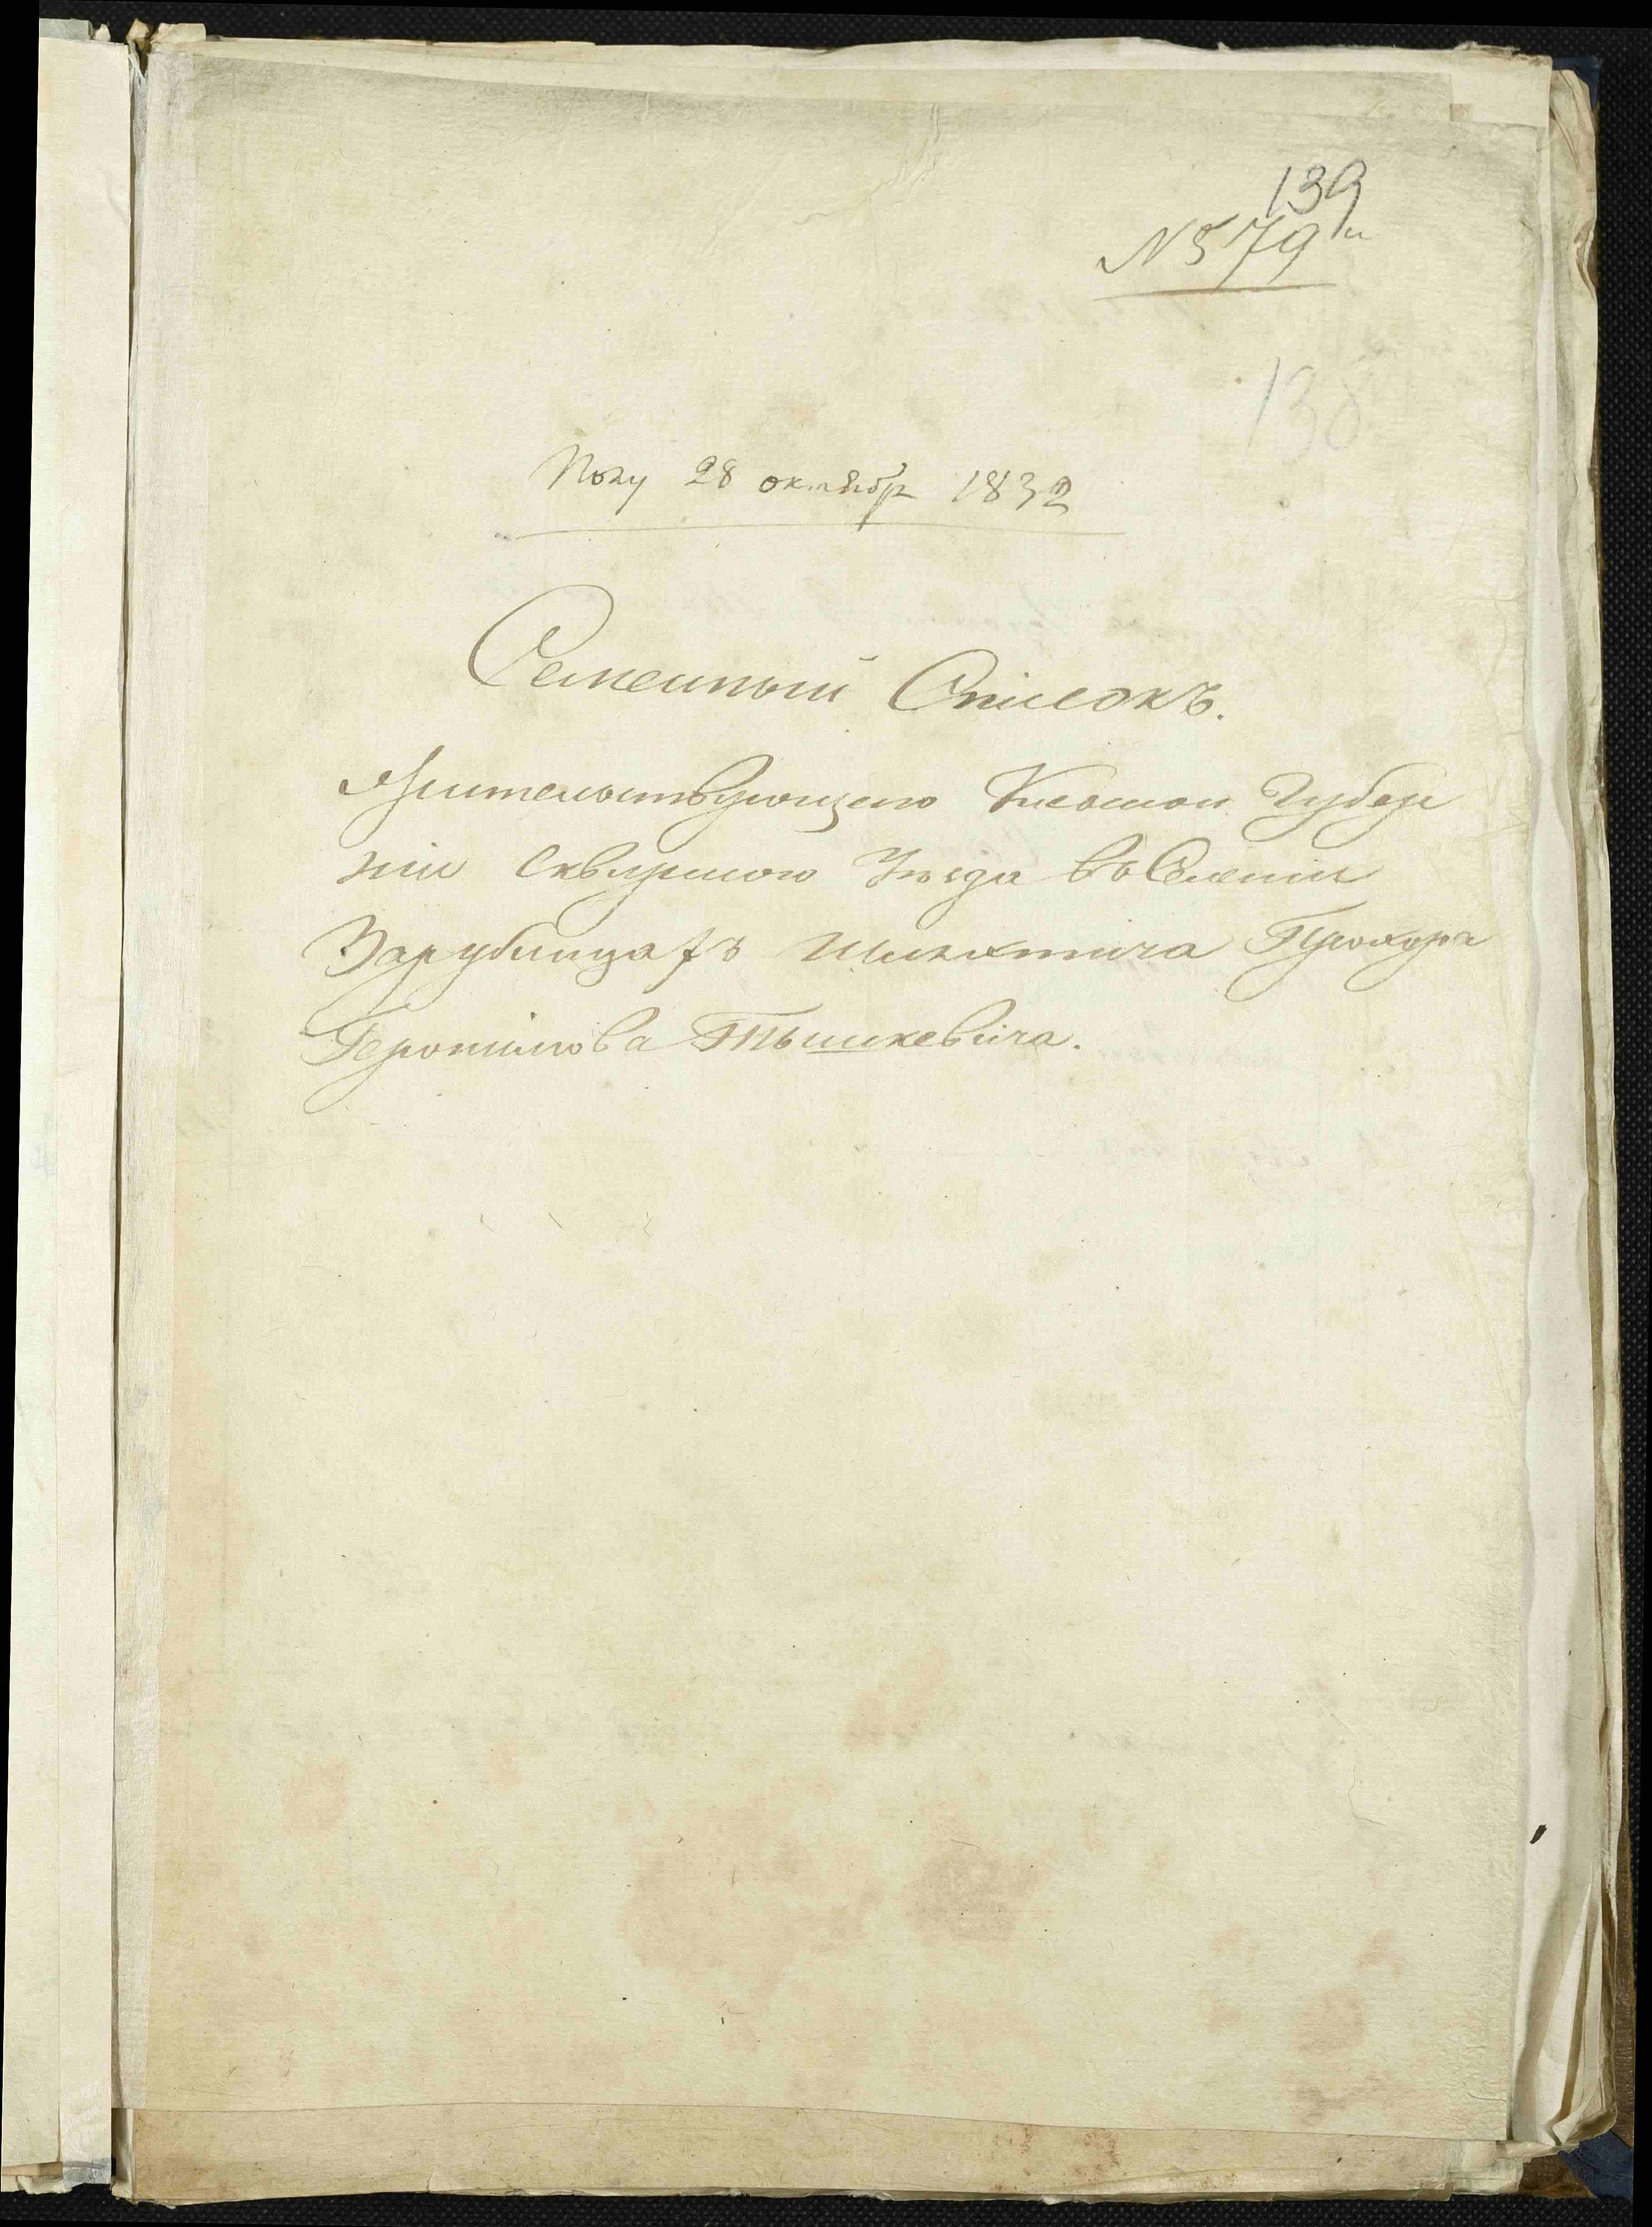 139
N 579
138
Полу 28 октябр 1832
Семейный Списокъ.
Жительствующего Киевской Губер
ніи Сквирского Уѣзда въ Селеніи
Зарубинцахъ Шляхтича Прохора
Геронимова Тышкевича.